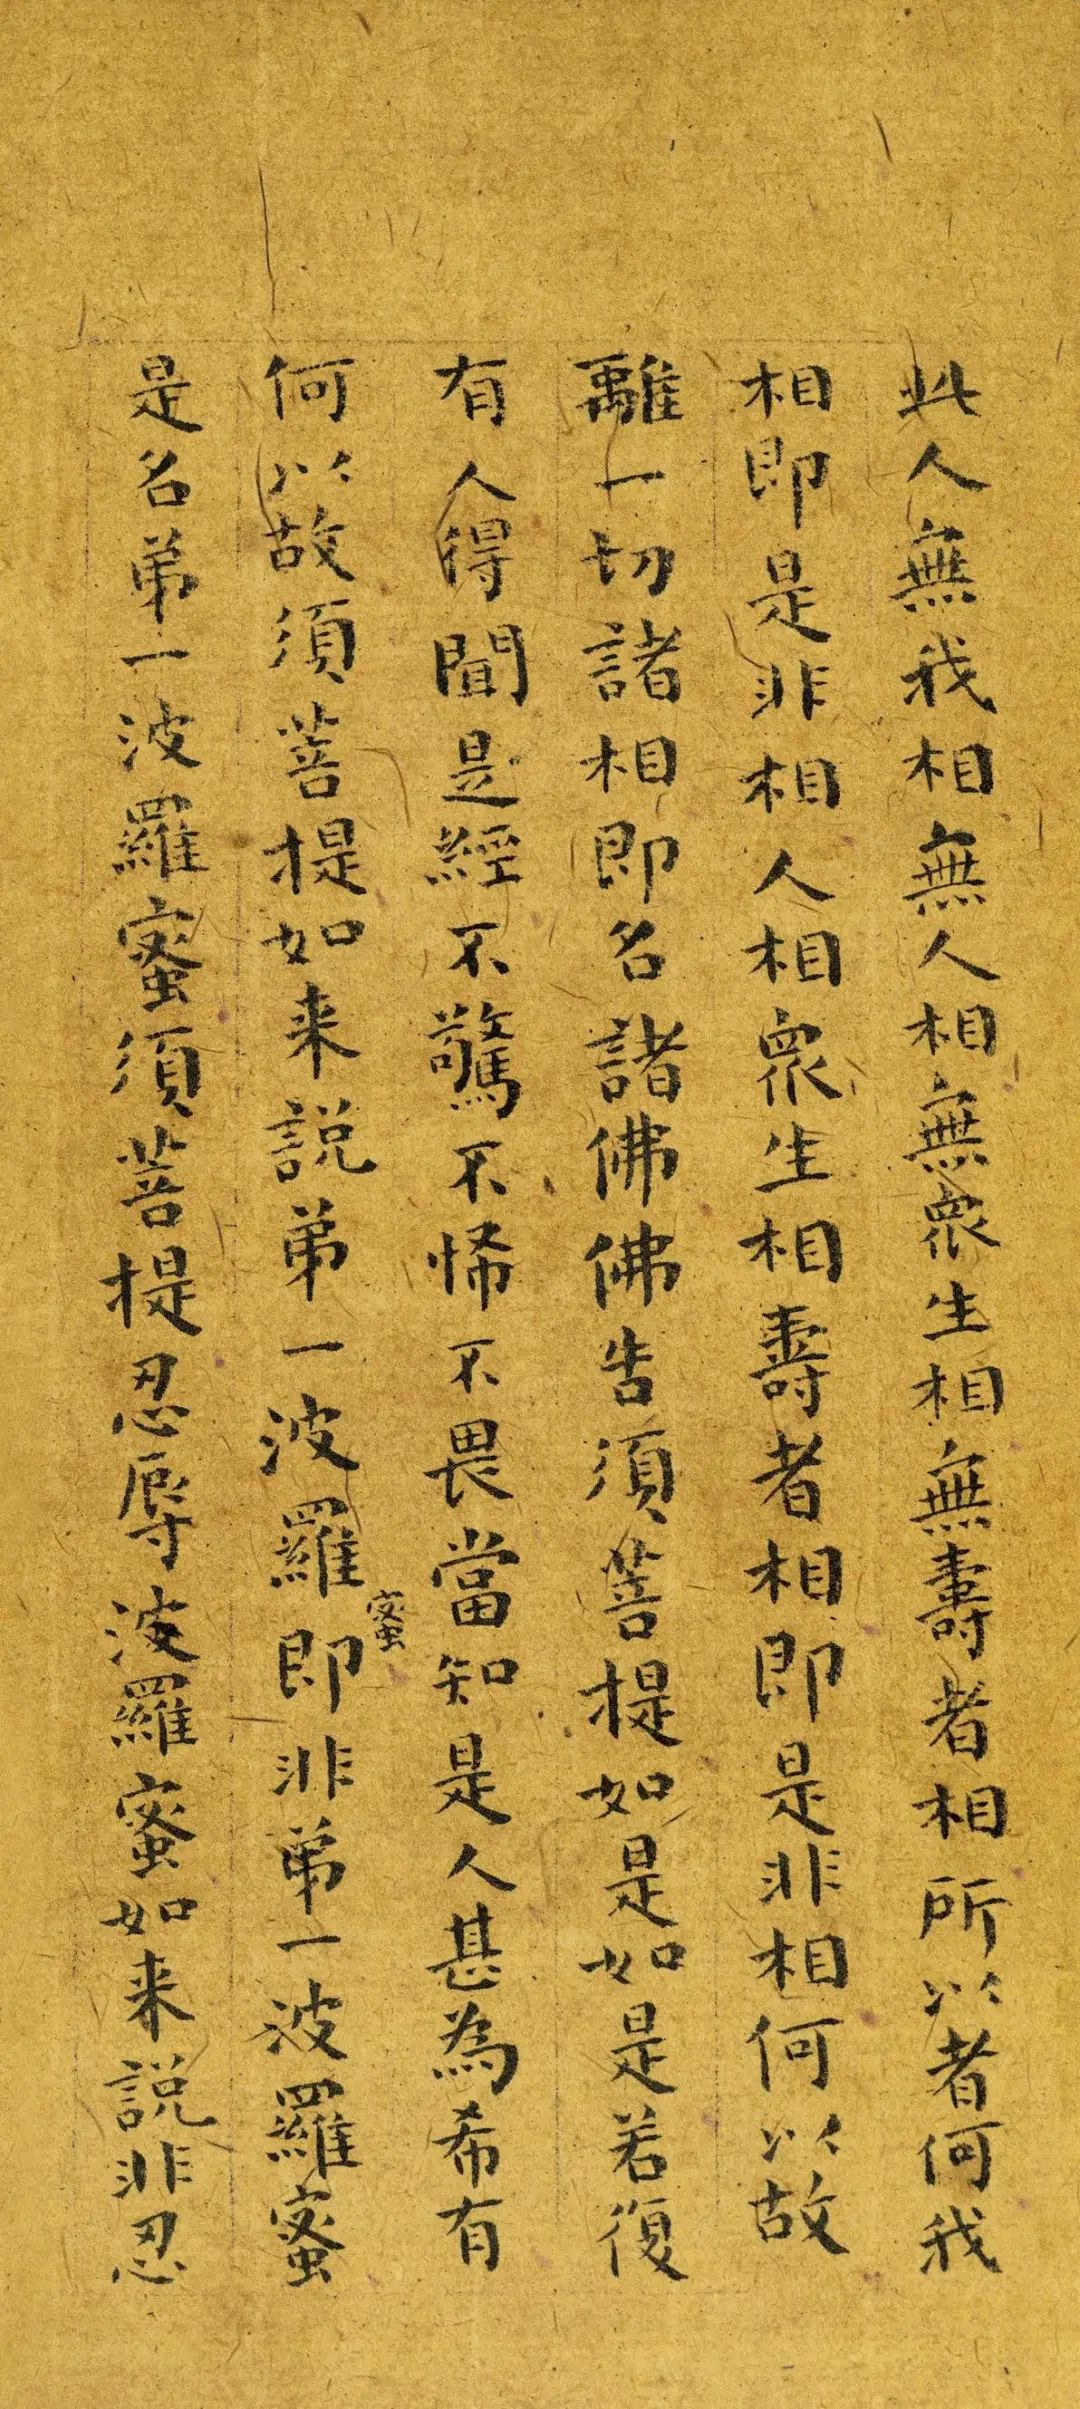 此人無我相無人相無衆生相無壽者相所以者何我
相即是非相人相衆生相壽者相即是非相何以故
離一切諸相即名諸佛佛告須菩提如是如是若復
有人得聞是經不驚不怖不畏當知是人甚為希有
何以故須菩提如来說弟一波羅蜜即非弟一波羅蜜
是名弟一波羅蜜須菩提忍辱波羅蜜如来說非忍